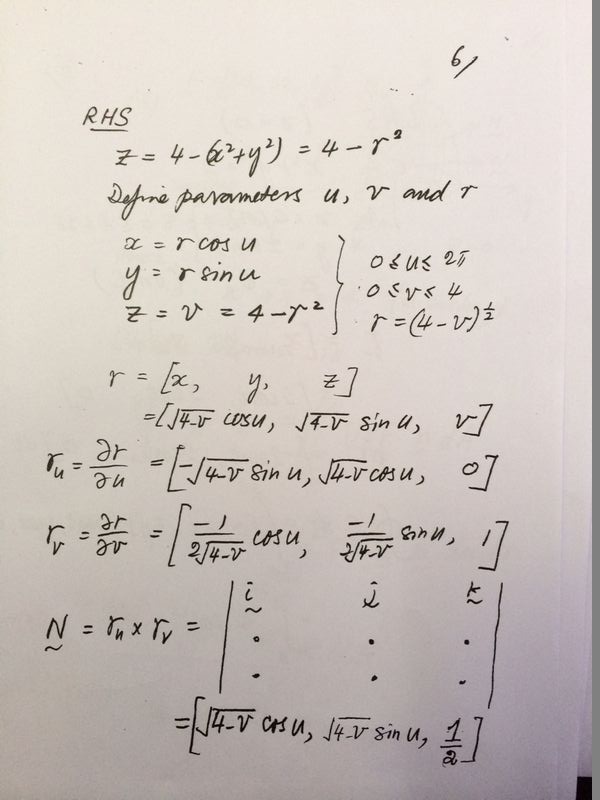 6/
RHS
z = 4-(x²+y²) = 4 - r²
Define parameters u, v and r
x = r cos u
y = r sin u
z = v = 4-r²
0 ≤ u ≤ 2π
0 ≤ v ≤ 4
r = (4-v)^½
r = [x, y, z]
= [√4-v cos u, √4-v sin u, v]
r_u = ∂r/∂u = [-√4-v sin u, √4-v cos u, 0]
r_v = ∂r/∂v = [-1/2√4-v cos u, -1/2√4-v sin u, 1]
N = r_u × r_v = | i j k |
| . . . |
| . . . |
= [√4-v cos u, √4-v sin u, 1/2]